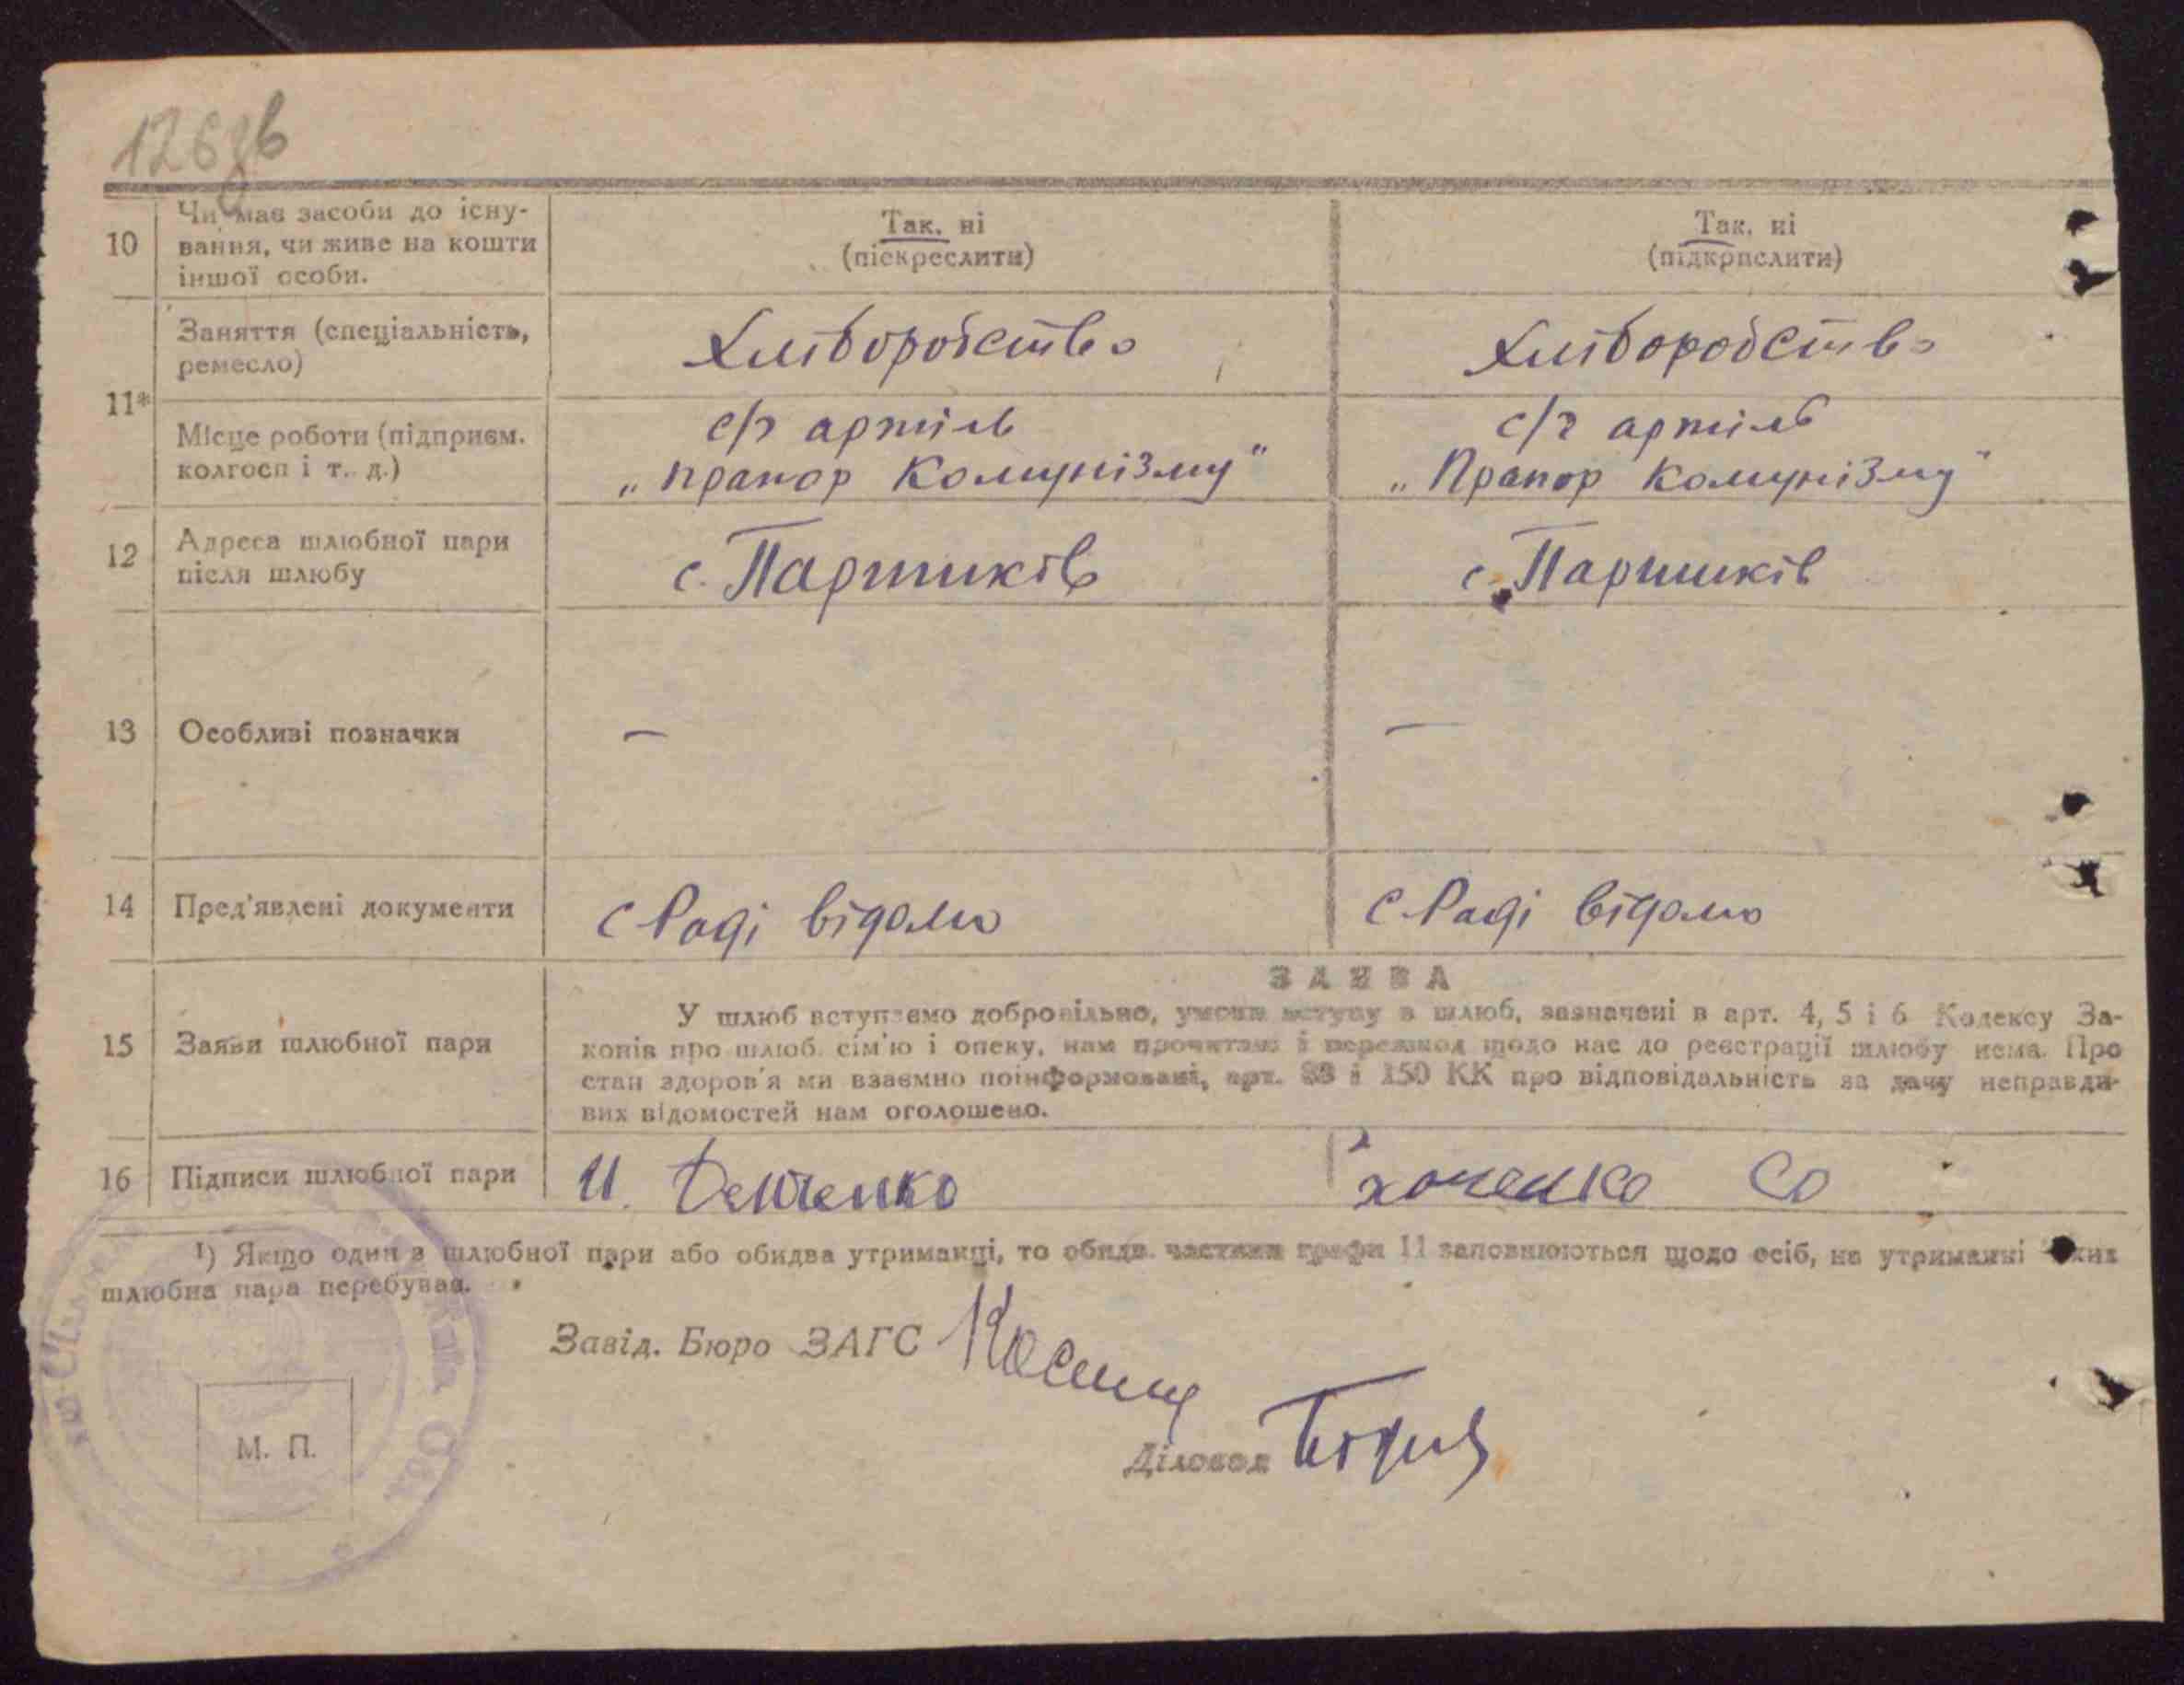 126зв
10
Чи має засоби до існу-
вання, чи живе на кошти
іншої особи.
Так, ні
(піскреслити)
Так, ні
(підкрислити)
11*
Заняття (спеціальність,
ремесло)
Хліборобство
Хліборобство
Місце роботи (підприєм.
колгосп і т. д.)
с/г артіль
„Прапор Комунізму"
с/г артіль
„Прапор Комунізму"
12
Адреса шлюбної пари
після шлюбу
с. Паришків
с. Паришків
13
Особливі позначки
—
—
14
Пред'явлені документи
с Раді відомо
с Раді відомо
15
Заяви шлюбної пари
ЗАЯВА
У шлюб вступаємо добровільно, умови вступу в шлюб, зазначені в арт. 4, 5 і 6 Кодексу За-
конів про шлюб, сім'ю і опеку, нам прочитано і перешкод щодо нас до реєстрації шлюбу нема. Про
стан здоров'я ми взаємно поінформовані, арт. 88 і 150 КК про відповідальність за дачу неправди-
вих відомостей нам оголошено.
16
Підписи шлюбної пари
И. Демченко
¹) Якщо один з шлюбної пари або обидва утриманці, то обидві частини графи 11 заповнюються щодо осіб, на утриманні яких
шлюбна пара перебуває.
Завід. Бюро ЗАГС
Діловод
М. П.